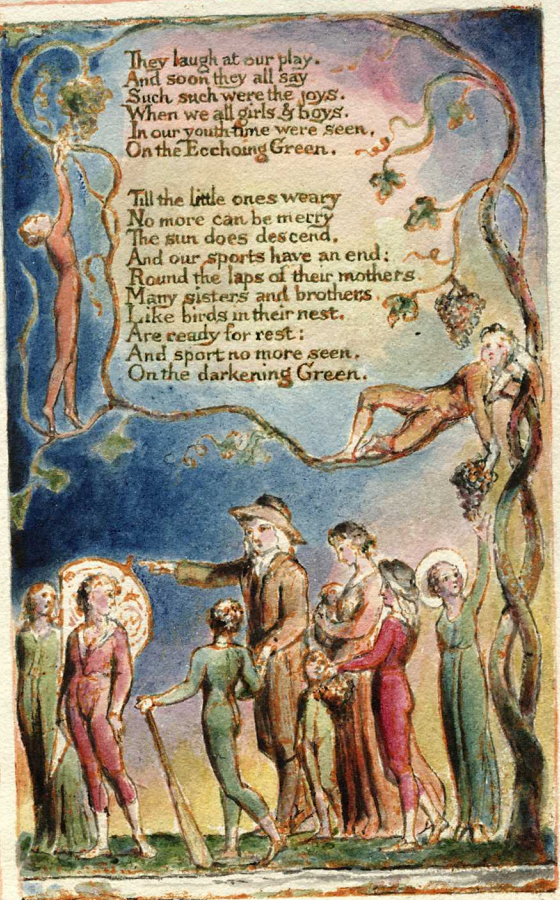 They laugh at our play.
And soon they all say
Such such were the joys.
When we all girls & boys.
In our youth-time were seen,
On the Ecchoing Green.
Till the little ones weary
No more can be merry
The sun does descend,
And our sports have an end:
Round the laps of their mothers.
Many sisters and brothers.
Like birds in their nest.
Are ready for rest:
And sport no more seen.
On the darkening Green.